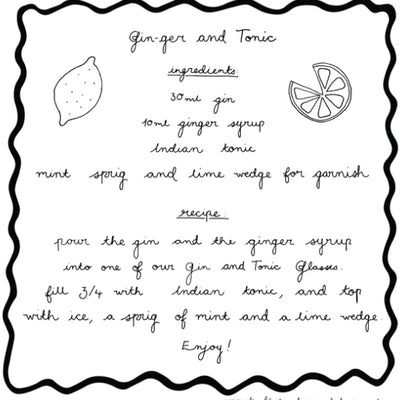 Gin-ger and Tonic
ingredients:
30ml gin
10ml ginger syrup
Indian tonic
mint sprig and lime wedge for garnish
recipe:
pour the gin and the ginger syrup
into one of our Gin and Tonic Glasses.
fill 3/4 with Indian tonic, and top
with ice, a sprig of mint and a lime wedge.
Enjoy!